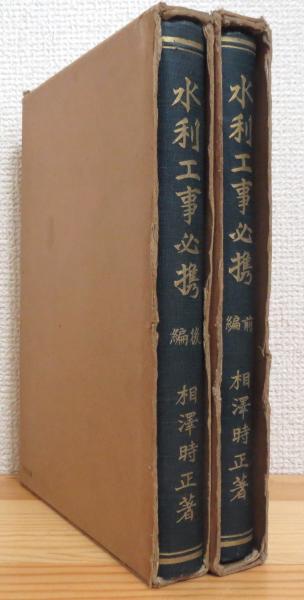 水利工事必携
前編
相澤時正著
水利工事必携
後編
相澤時正著